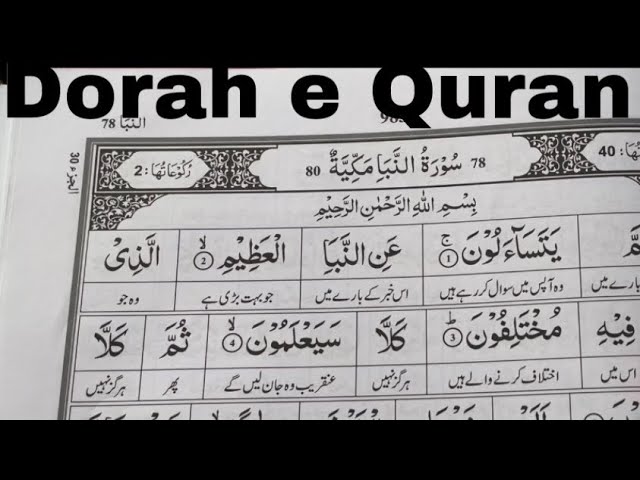 Dorah e Quran
النبا 78
الجزء 30
رُكُوْعَاتُهَا: 2
78 سُوْرَةُ النَّبَاِ مَكِّيَّةٌ 80
40
بِسْمِ اللّٰهِ الرَّحْمٰنِ الرَّحِيْمِ
يَتَسَآءَلُوْنَ ۚ ① عَنِ النَّبَاِ الْعَظِيْمِ ۙ ② الَّذِيْ
کے بارے میں وہ آپس میں سوال کر رہے ہیں اس خبر کے بارے میں جو بہت بڑی ہے وہ جو
فِيْهِ مُخْتَلِفُوْنَ ؕ ③ كَلَّا سَيَعْلَمُوْنَ ۙ ④ ثُمَّ كَلَّا
اس میں اختلاف کرنے والے ہیں ہرگز نہیں عنقریب وہ جان لیں گے پھر ہرگز نہیں